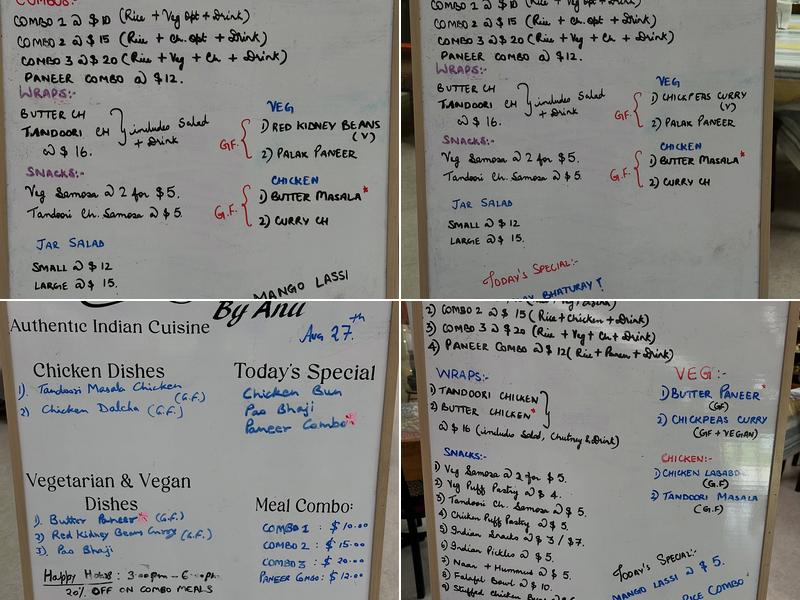 COMBOS:-
COMBO 1 @ $10 (Rice + Veg Opt + Drink)
COMBO 2 @ $15 (Rice + Ch. Opt + Drink)
COMBO 3 @ $20 (Rice + Veg + Ch + Drink)
PANEER COMBO @ $12.
WRAPS:-
BUTTER CH
TANDOORI CH
includes Salad
+ Drink
@ $16.
VEG
G.F.
1) RED KIDNEY BEANS
(V)
2) PALAK PANEER
SNACKS:-
Veg Samosa @ 2 for $5.
Tandoori Ch. Samosa @ $5.
CHICKEN
G.F.
1) BUTTER MASALA*
2) CURRY CH
JAR SALAD
SMALL @ $12
LARGE @ $15.
MANGO LASSI
COMBO 1 @ $10 (Rice + Veg Opt + Drink)
COMBO 2 @ $15 (Rice + Ch. Opt + Drink)
COMBO 3 @ $20 (Rice + Veg + Ch + Drink)
PANEER COMBO @ $12.
WRAPS:-
BUTTER CH
TANDOORI CH
includes Salad
+ Drink
@ $16.
VEG
G.F.
1) CHICKPEAS CURRY
(V)
2) PALAK PANEER
SNACKS:-
Veg Samosa @ 2 for $5.
Tandoori Ch. Samosa @ $5.
CHICKEN
G.F.
1) BUTTER MASALA*
2) CURRY CH
JAR SALAD
SMALL @ $12
LARGE @ $15.
TODAY'S SPECIAL:-
BHATURAY
By Anu
Authentic Indian Cuisine
Aug 27th
Chicken Dishes
1). Tandoori Masala Chicken
(G.F.)
2) Chicken Dalcha (G.F.)
Today's Special
Chicken Bun
Pao Bhaji
Paneer Combo*
Vegetarian & Vegan
Dishes
1). Butter Paneer* (G.F.)
2) Red Kidney Beans Curry (G.F.)
3). Pao Bhaji
Meal Combo:
COMBO 1 : $10.00
COMBO 2 : $15.00
COMBO 3 : $20.00
PANEER COMBO : $12.00
Happy Hours : 3:00pm - 6:00pm
20% OFF ON COMBO MEALS
2) COMBO 2 @ $15 (Rice + Chicken + Drink)
3) COMBO 3 @ $20 (Rice + Veg + Ch + Drink)
4) PANEER COMBO @ $12 (Rice + Paneer + Drink)
WRAPS:-
1) TANDOORI CHICKEN
2) BUTTER CHICKEN*
@ $16 (includes Salad, Chutney & Drink)
VEG:-
1) BUTTER PANEER*
(GF)
2) CHICKPEAS CURRY
(GF + VEGAN)
SNACKS:-
1) Veg Samosa @ 2 for $5.
2) Veg Puff Pastry @ $4.
3) Tandoori Ch. Samosa @ $5.
4) Chicken Puff Pastry @ $5.
5) Indian Snacks @ $3 / $7.
6) Indian Pickles @ $5.
7) Naan + Hummus @ $5.
8) Falafel Bowl @ $10.
9) Stuffed Chicken
CHICKEN:-
1) CHICKEN LABABDAR
(G.F)
2) TANDOORI MASALA
(G.F)
TODAY'S SPECIAL:-
MANGO LASSI @ $5.
RICE COMBO